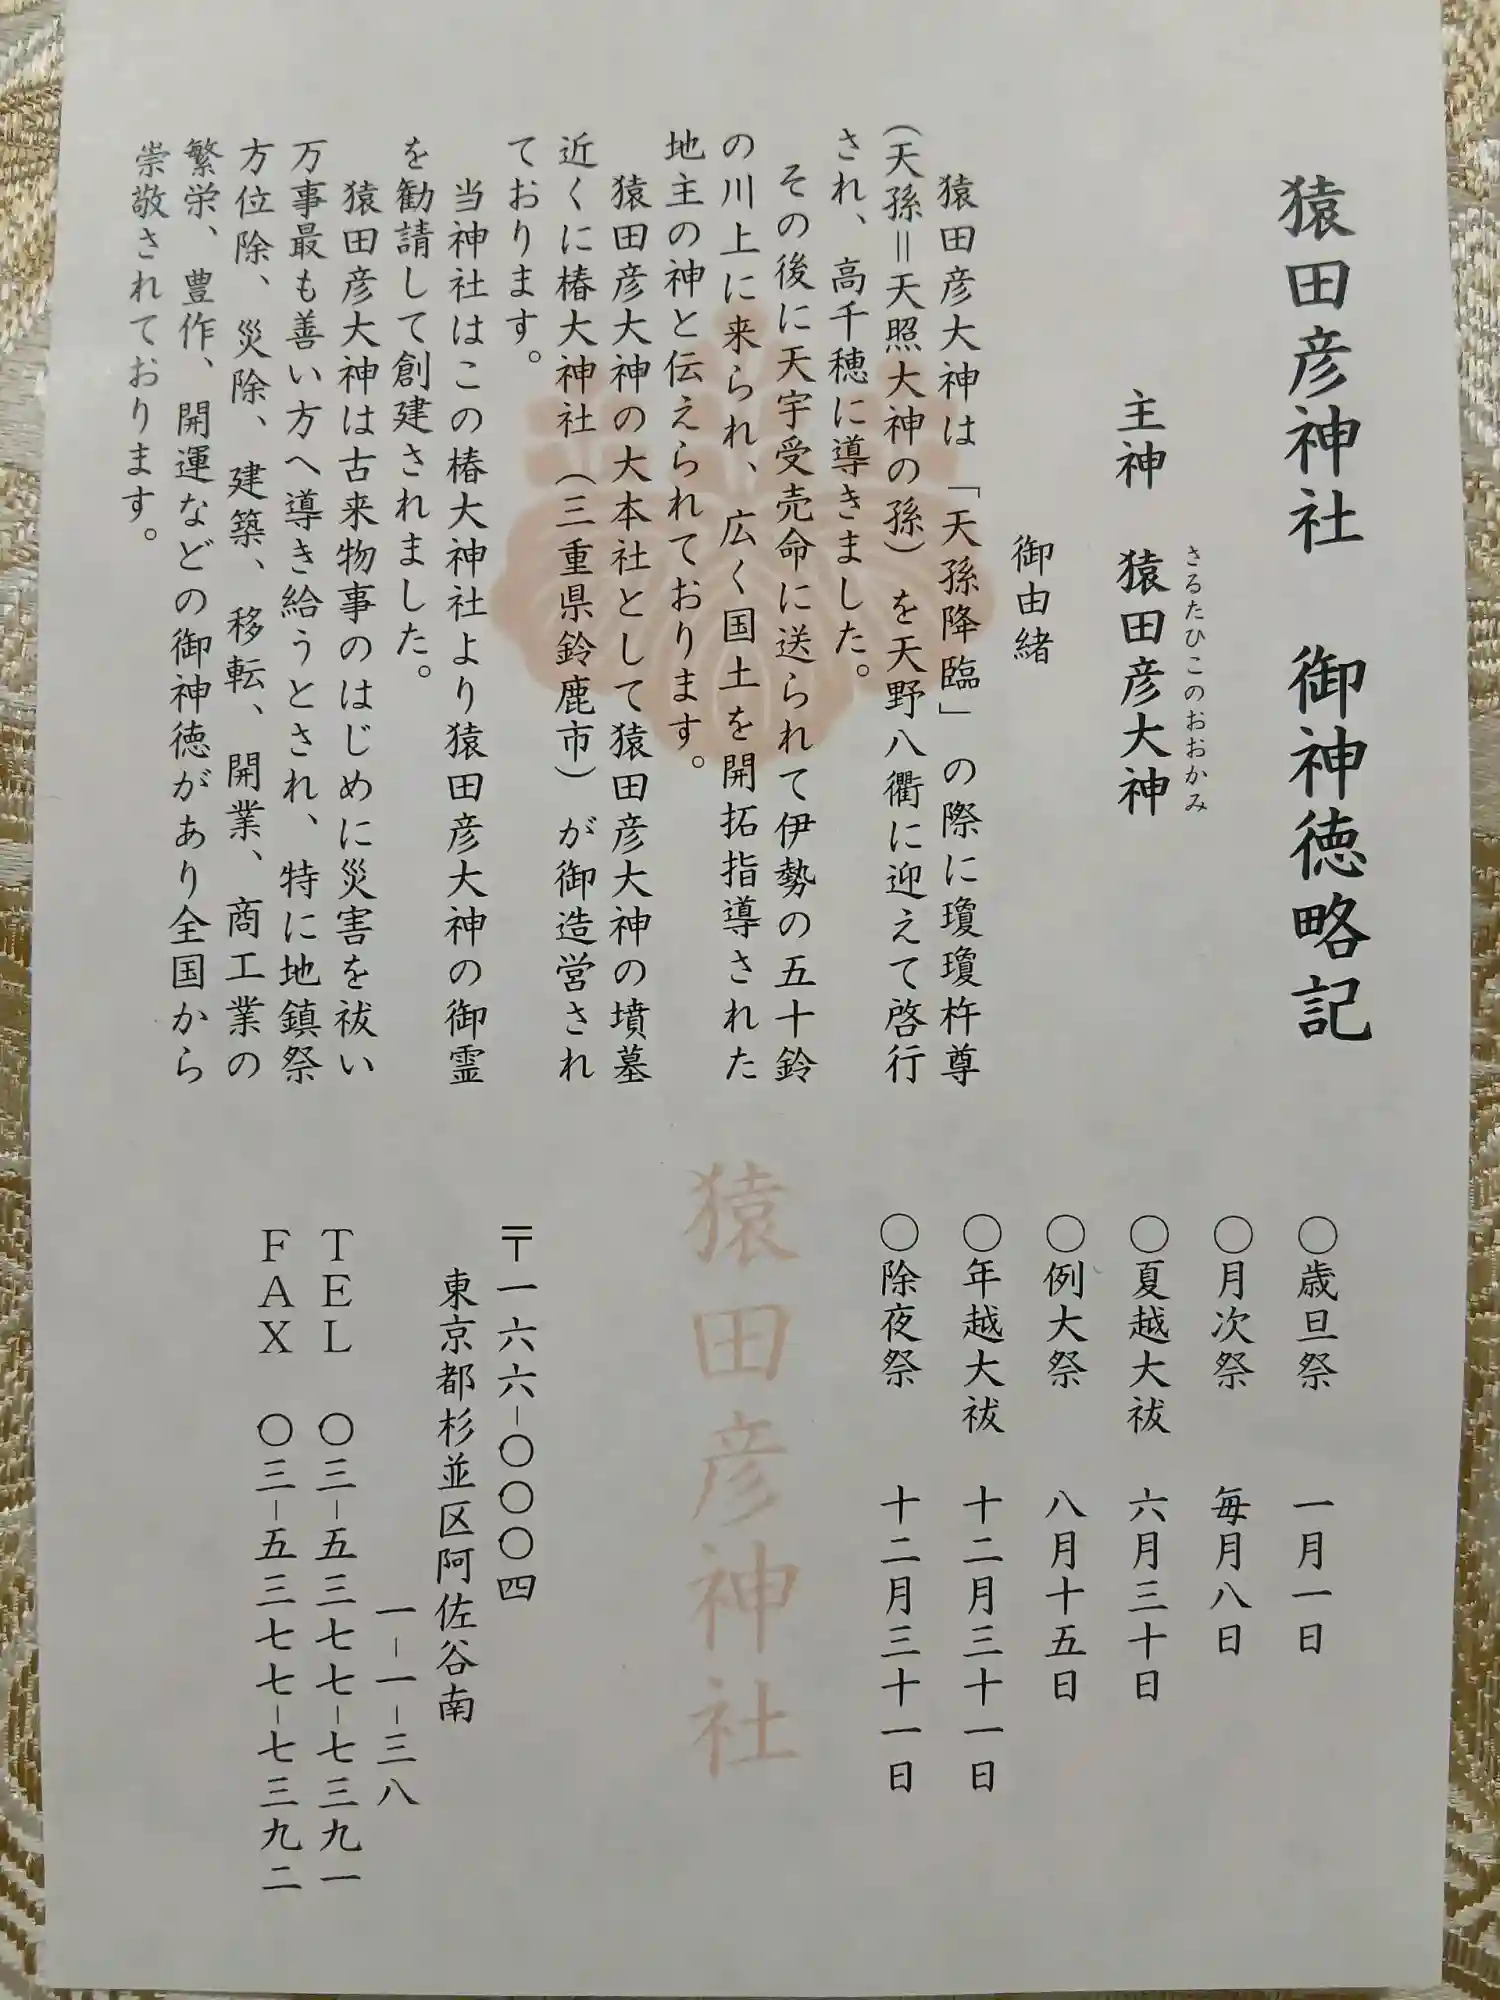 猿田彦神社　御神徳略記
主神　猿田彦大神
さるたひこのおおかみ
御由緒
猿田彦大神は「天孫降臨」の際に瓊瓊杵尊
（天孫＝天照大神の孫）を天野八衢に迎えて啓行
され、高千穂に導きました。
その後に天宇受売命に送られて伊勢の五十鈴
の川上に来られ、広く国土を開拓指導された
地主の神と伝えられております。
猿田彦大神の大本社として猿田彦大神の墳墓
近くに椿大神社（三重県鈴鹿市）が御造営され
ております。
当神社はこの椿大神社より猿田彦大神の御霊
を勧請して創建されました。
猿田彦大神は古来物事のはじめに災害を祓い
万事最も善い方へ導き給うとされ、特に地鎮祭
方位除、災除、建築、移転、開業、商工業の
繁栄、豊作、開運などの御神徳があり全国から
崇敬されております。
〇歳旦祭　一月一日
〇月次祭　毎月八日
〇夏越大祓　六月三十日
〇例大祭　八月十五日
〇年越大祓　十二月三十一日
〇除夜祭　十二月三十一日
猿田彦神社
〒一六六-〇〇〇四
東京都杉並区阿佐谷南
一-一-三八
ＴＥＬ　〇三-五三七七-七三九一
ＦＡＸ　〇三-五三七七-七三九二